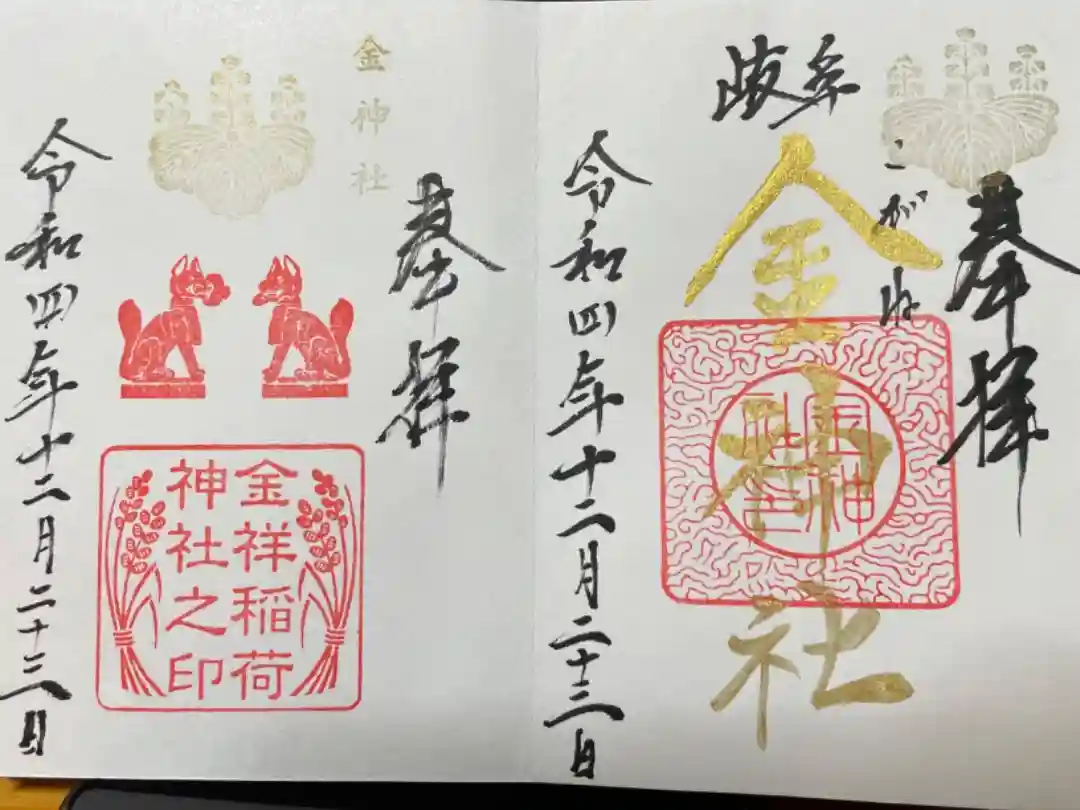 岐阜
奉拝
こがね
金神社
金神社之印
令和四年十二月二十三日
金神社
奉拝
金祥稲荷
神社之印
令和四年十二月二十三日